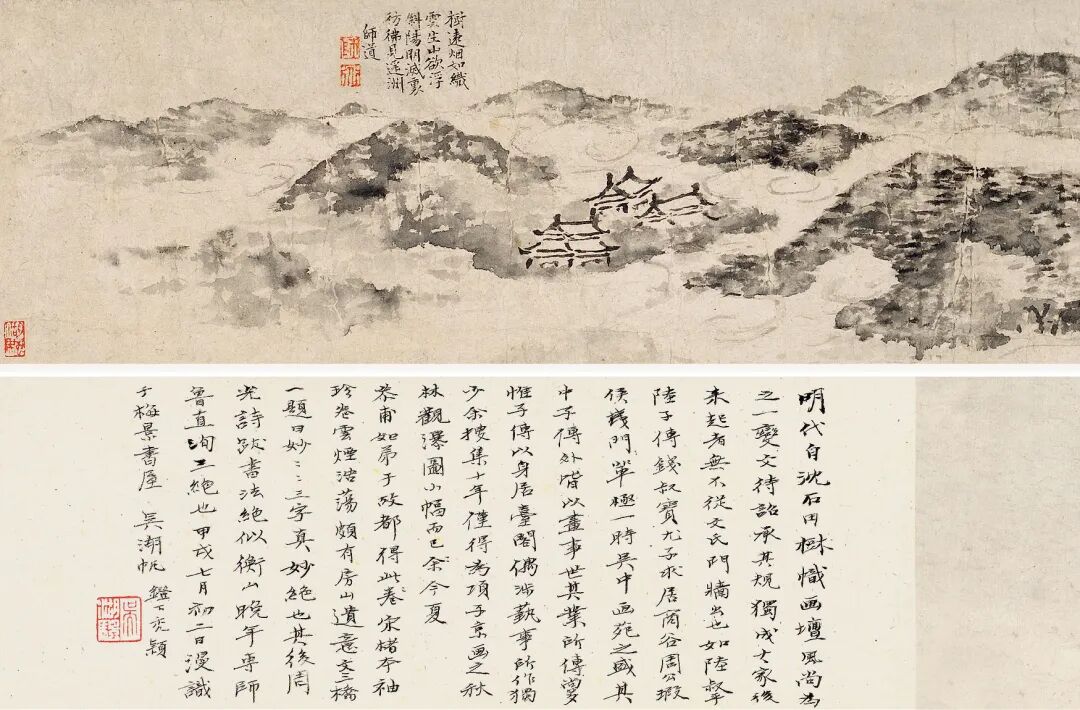 樹遠烟如織
雲生山欲浮
斜陽明滅裏
彷彿見洲
師道
明代自沈石田樹幟画壇風尚為
之一變文待詔承其規獨成大家後
来起者無不從文氏門牆出也如陸
陸子傳錢叔寶尤子求居商谷周公瑕
侯門單極一時吳中画苑之盛其
中子傳外皆以畫事世其業所傳夥
惟子傳以身居臺閣偶涉藝事所作獨
少余搜集十年僅得為項子京画之秋
林觀瀑圖小幅而已余今夏
恭甫如弟于故都得此卷宋楮本袖
珍卷雲煙浩蕩頗有房山遺意文三橋
一題曰妙:::三字真妙絶也其後周
詩跋書法絶似衡山晚年專師
魯直洵三絶也甲戌七月初二日漫識
于梅景書屋 吳湖帆 鐙下禿穎